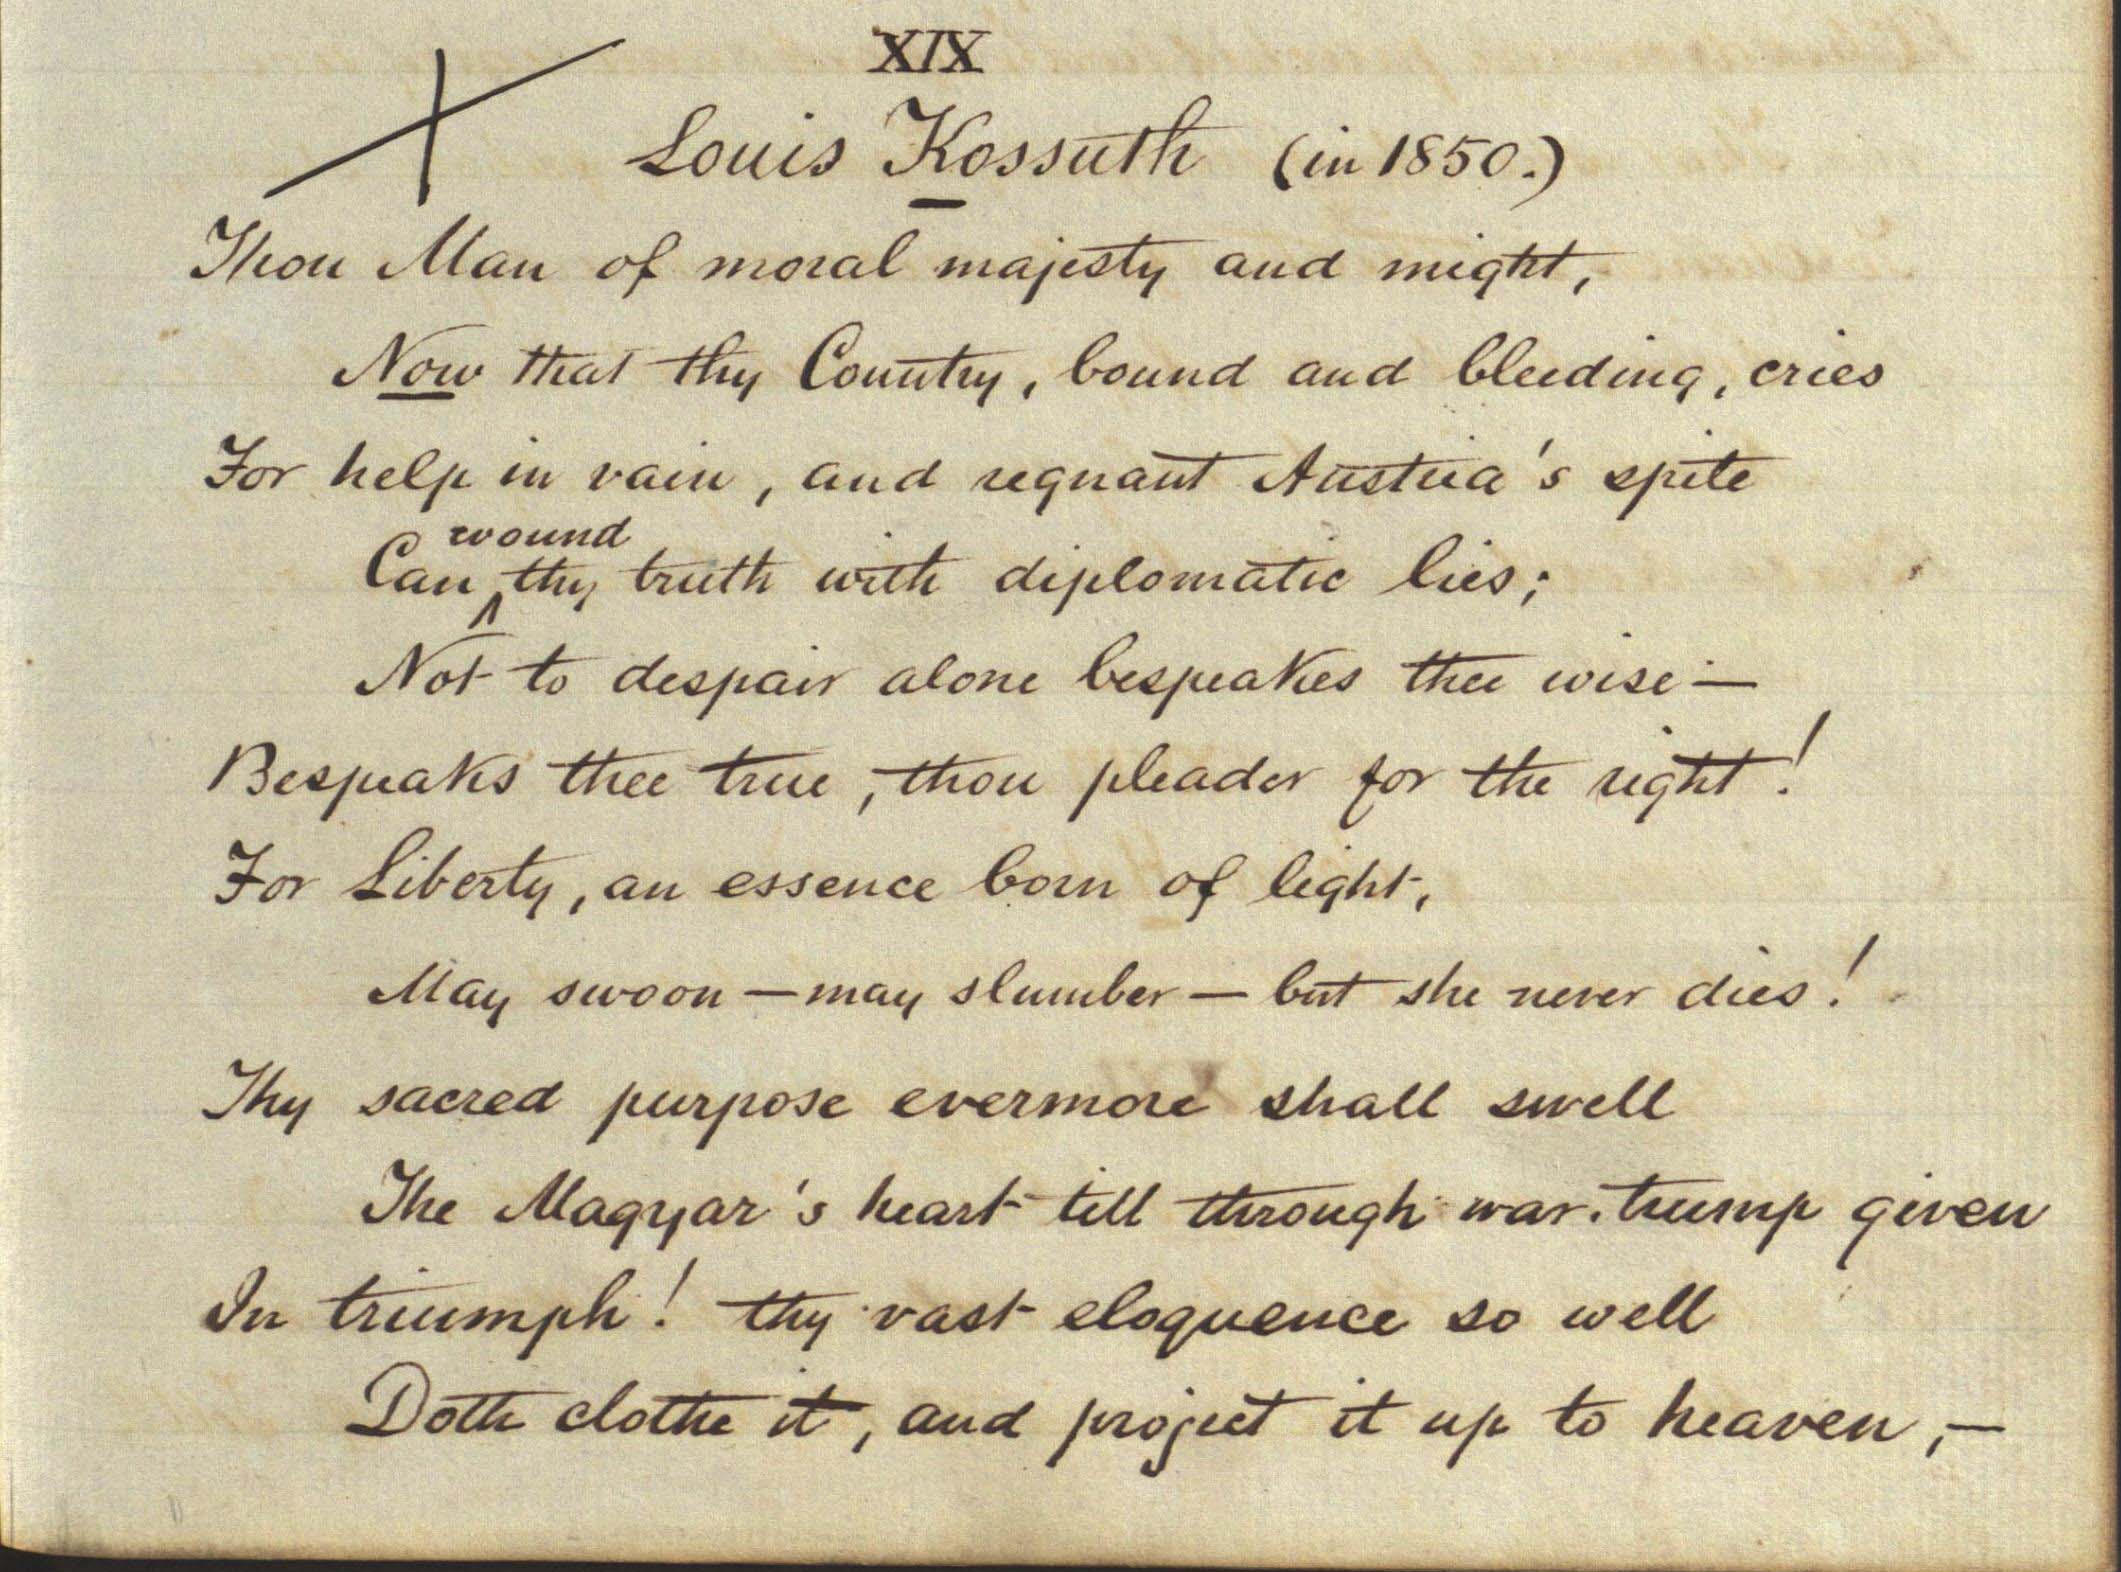 XIX
Louis Kossuth (in 1850.)
Thou Man of moral majesty and might,
Now that thy Country, bound and bleeding, cries
For help in vain, and regnant Austria's spite
Can wound thy truth with diplomatic lies;
Not to despair alone bespeakes thee wise —
Bespeaks thee true, thou pleader for the right!
For Liberty, an essence born of light,
May swoon — may slumber — but she never dies!
Thy sacred purpose evermore shall swell
The Magyar's heart till through war-trump given
In triumph! thy vast eloquence so well
Doth clothe it, and project it up to heaven, —